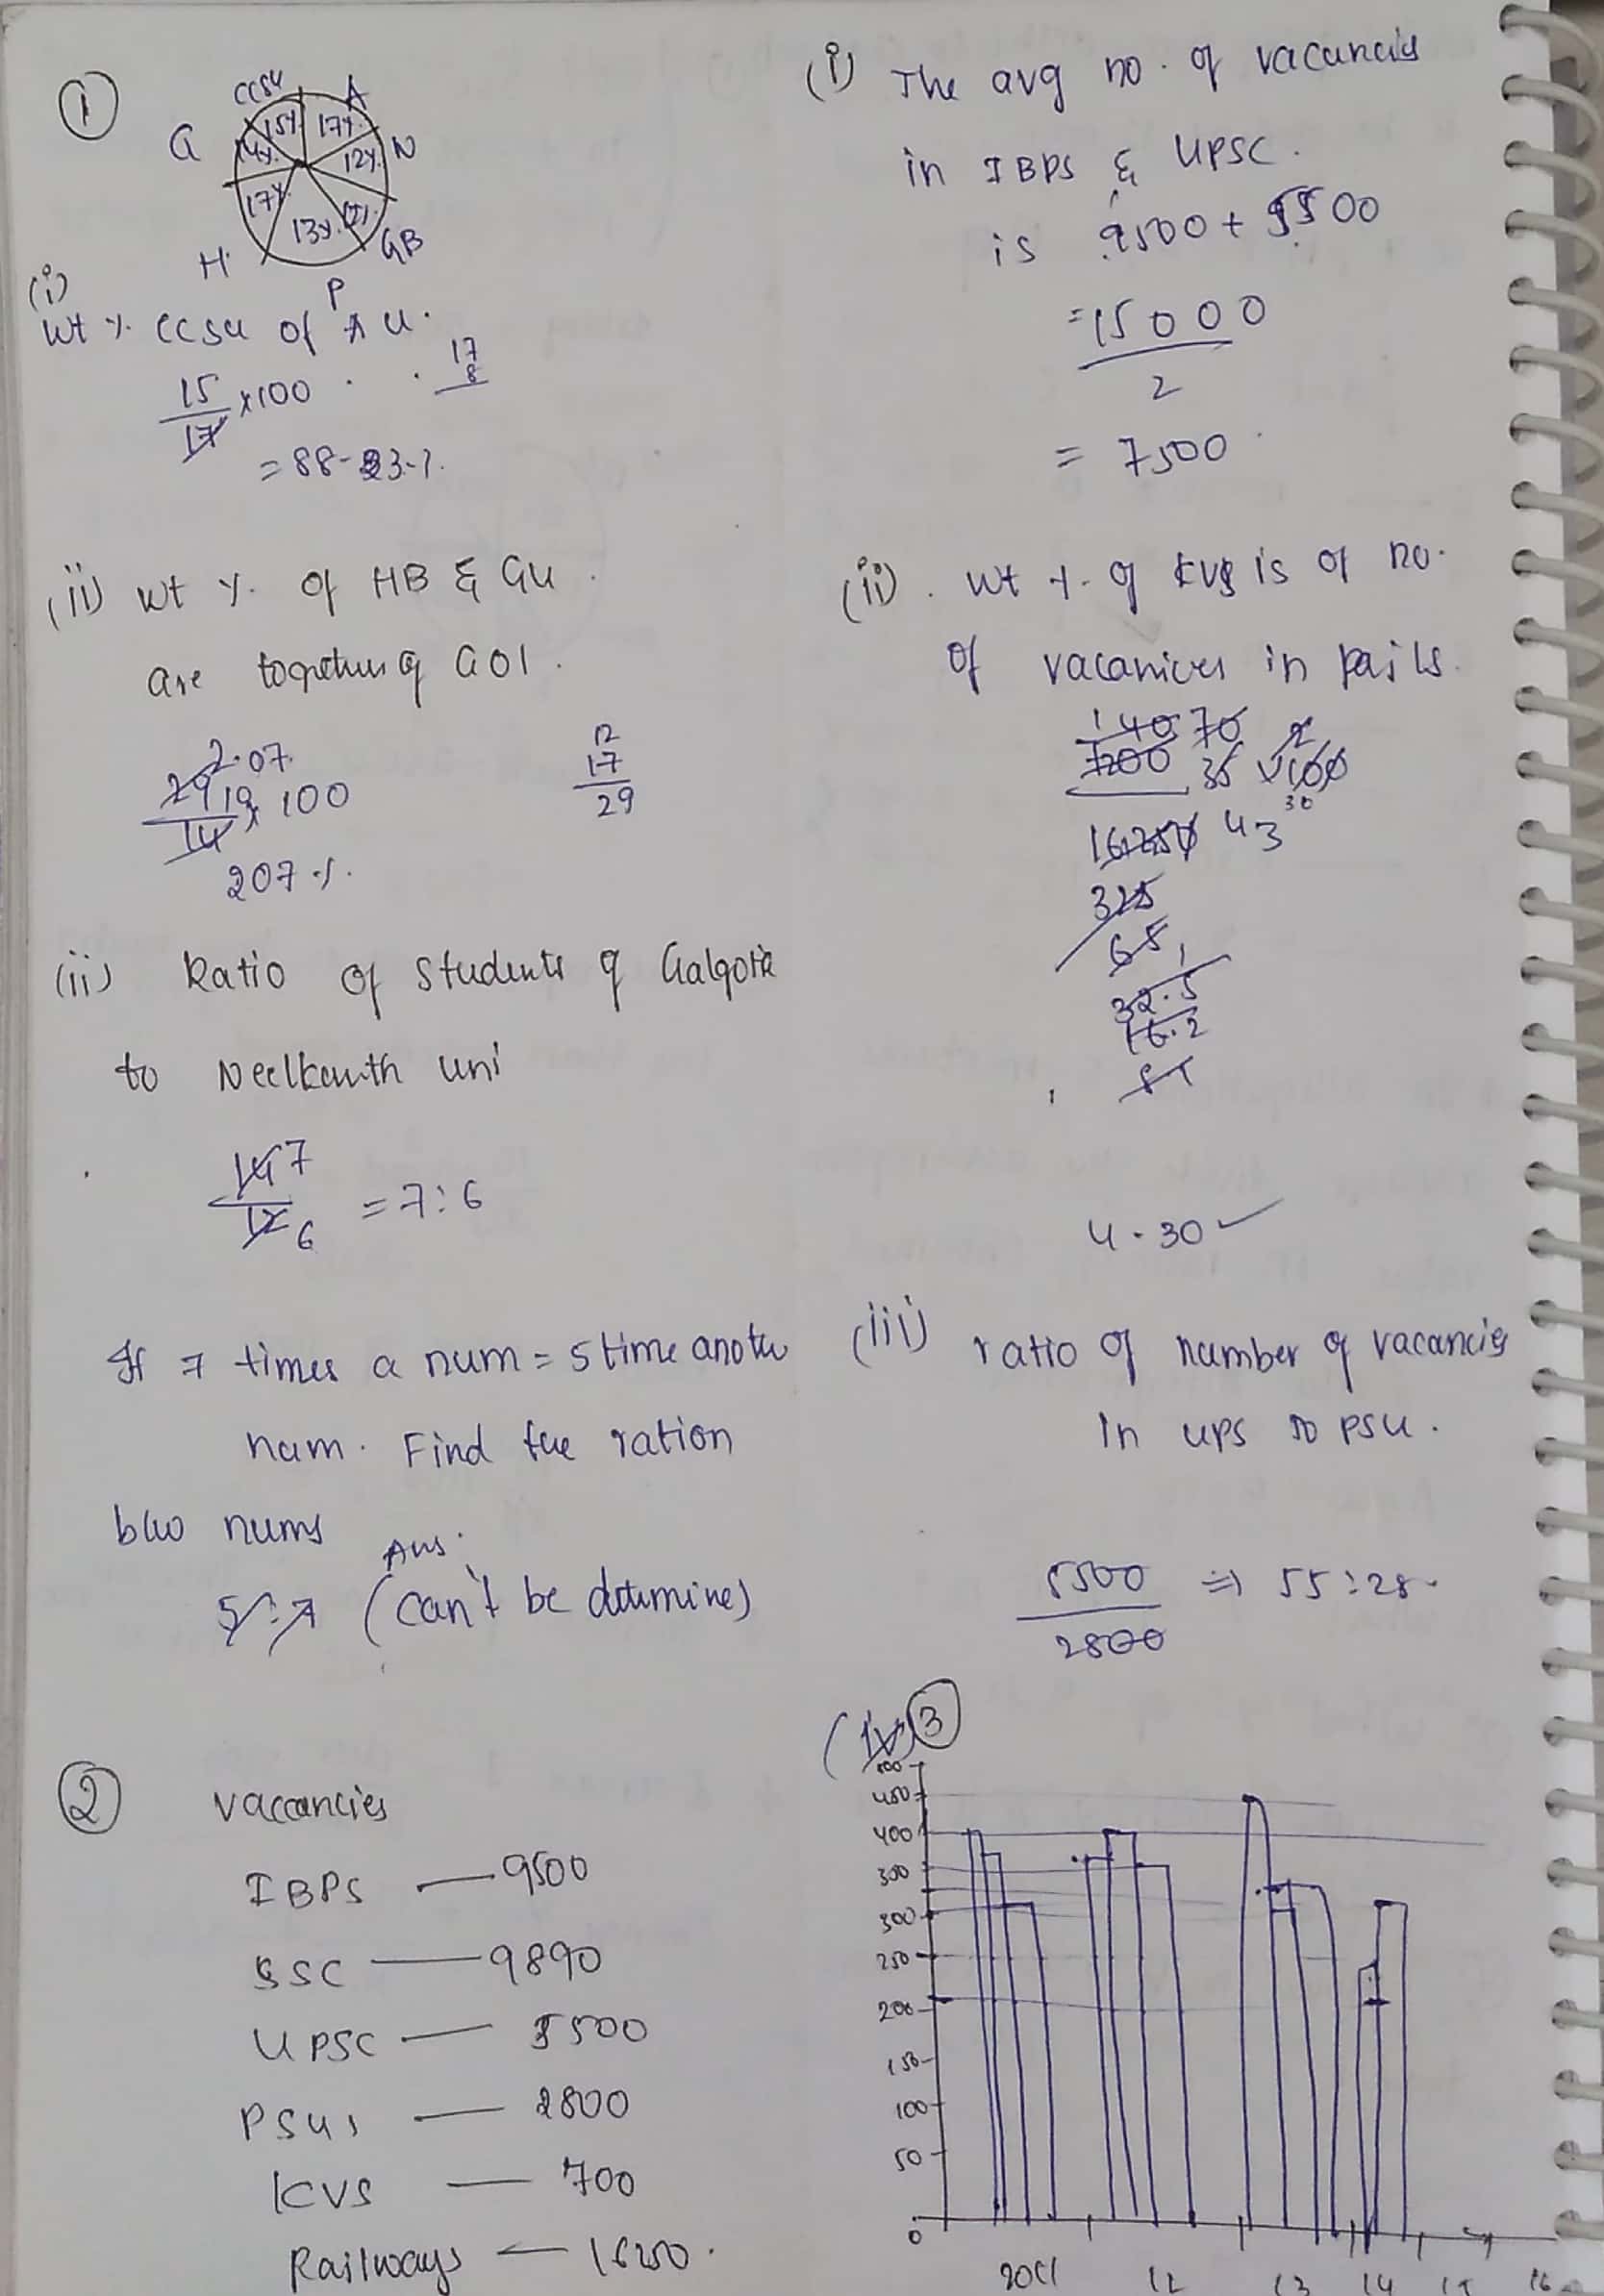 ①
CCSU
A
15%
17%
G
14%
12%
N
17%
13%
12%
H
GB
P
(i)
wt % CCSU of A U.
15/17 x100
17
8
= 88-23-%
(ii) wt %. of HB & GU
are together of GOI.
29/14 x 100
2.07
12
17
29
207 %.
(ii) Ratio of students of Galgotia
to Neelkanth uni
14/12 7 6 = 7:6
If 7 times a num = 5 time another
num. Find the ration
b/w nums
Ans.
5:7 (can't be determine)
② vaccancies
IBPS — 9500
SSC — 9890
UPSC — 5500
PSUs — 2800
KVS — 700
Railways — 16250.
(i) The avg no. of vacancies
in IBPS & UPSC.
is 9500 + 5500
= 15000
2
= 7500
(ii). wt %. of KVS is of no.
of vacanices in rails.
140 70
700 35 x100
16250 43
30
325
65
32.5
16.2
4.30 ✓
(iii) ratio of number of vacancies
in ups to PSU.
5500 => 55:28.
2800
(iv) ③
500
450
400
300
300
250
200
150
100
50
0
2011 12 13 14 15 16